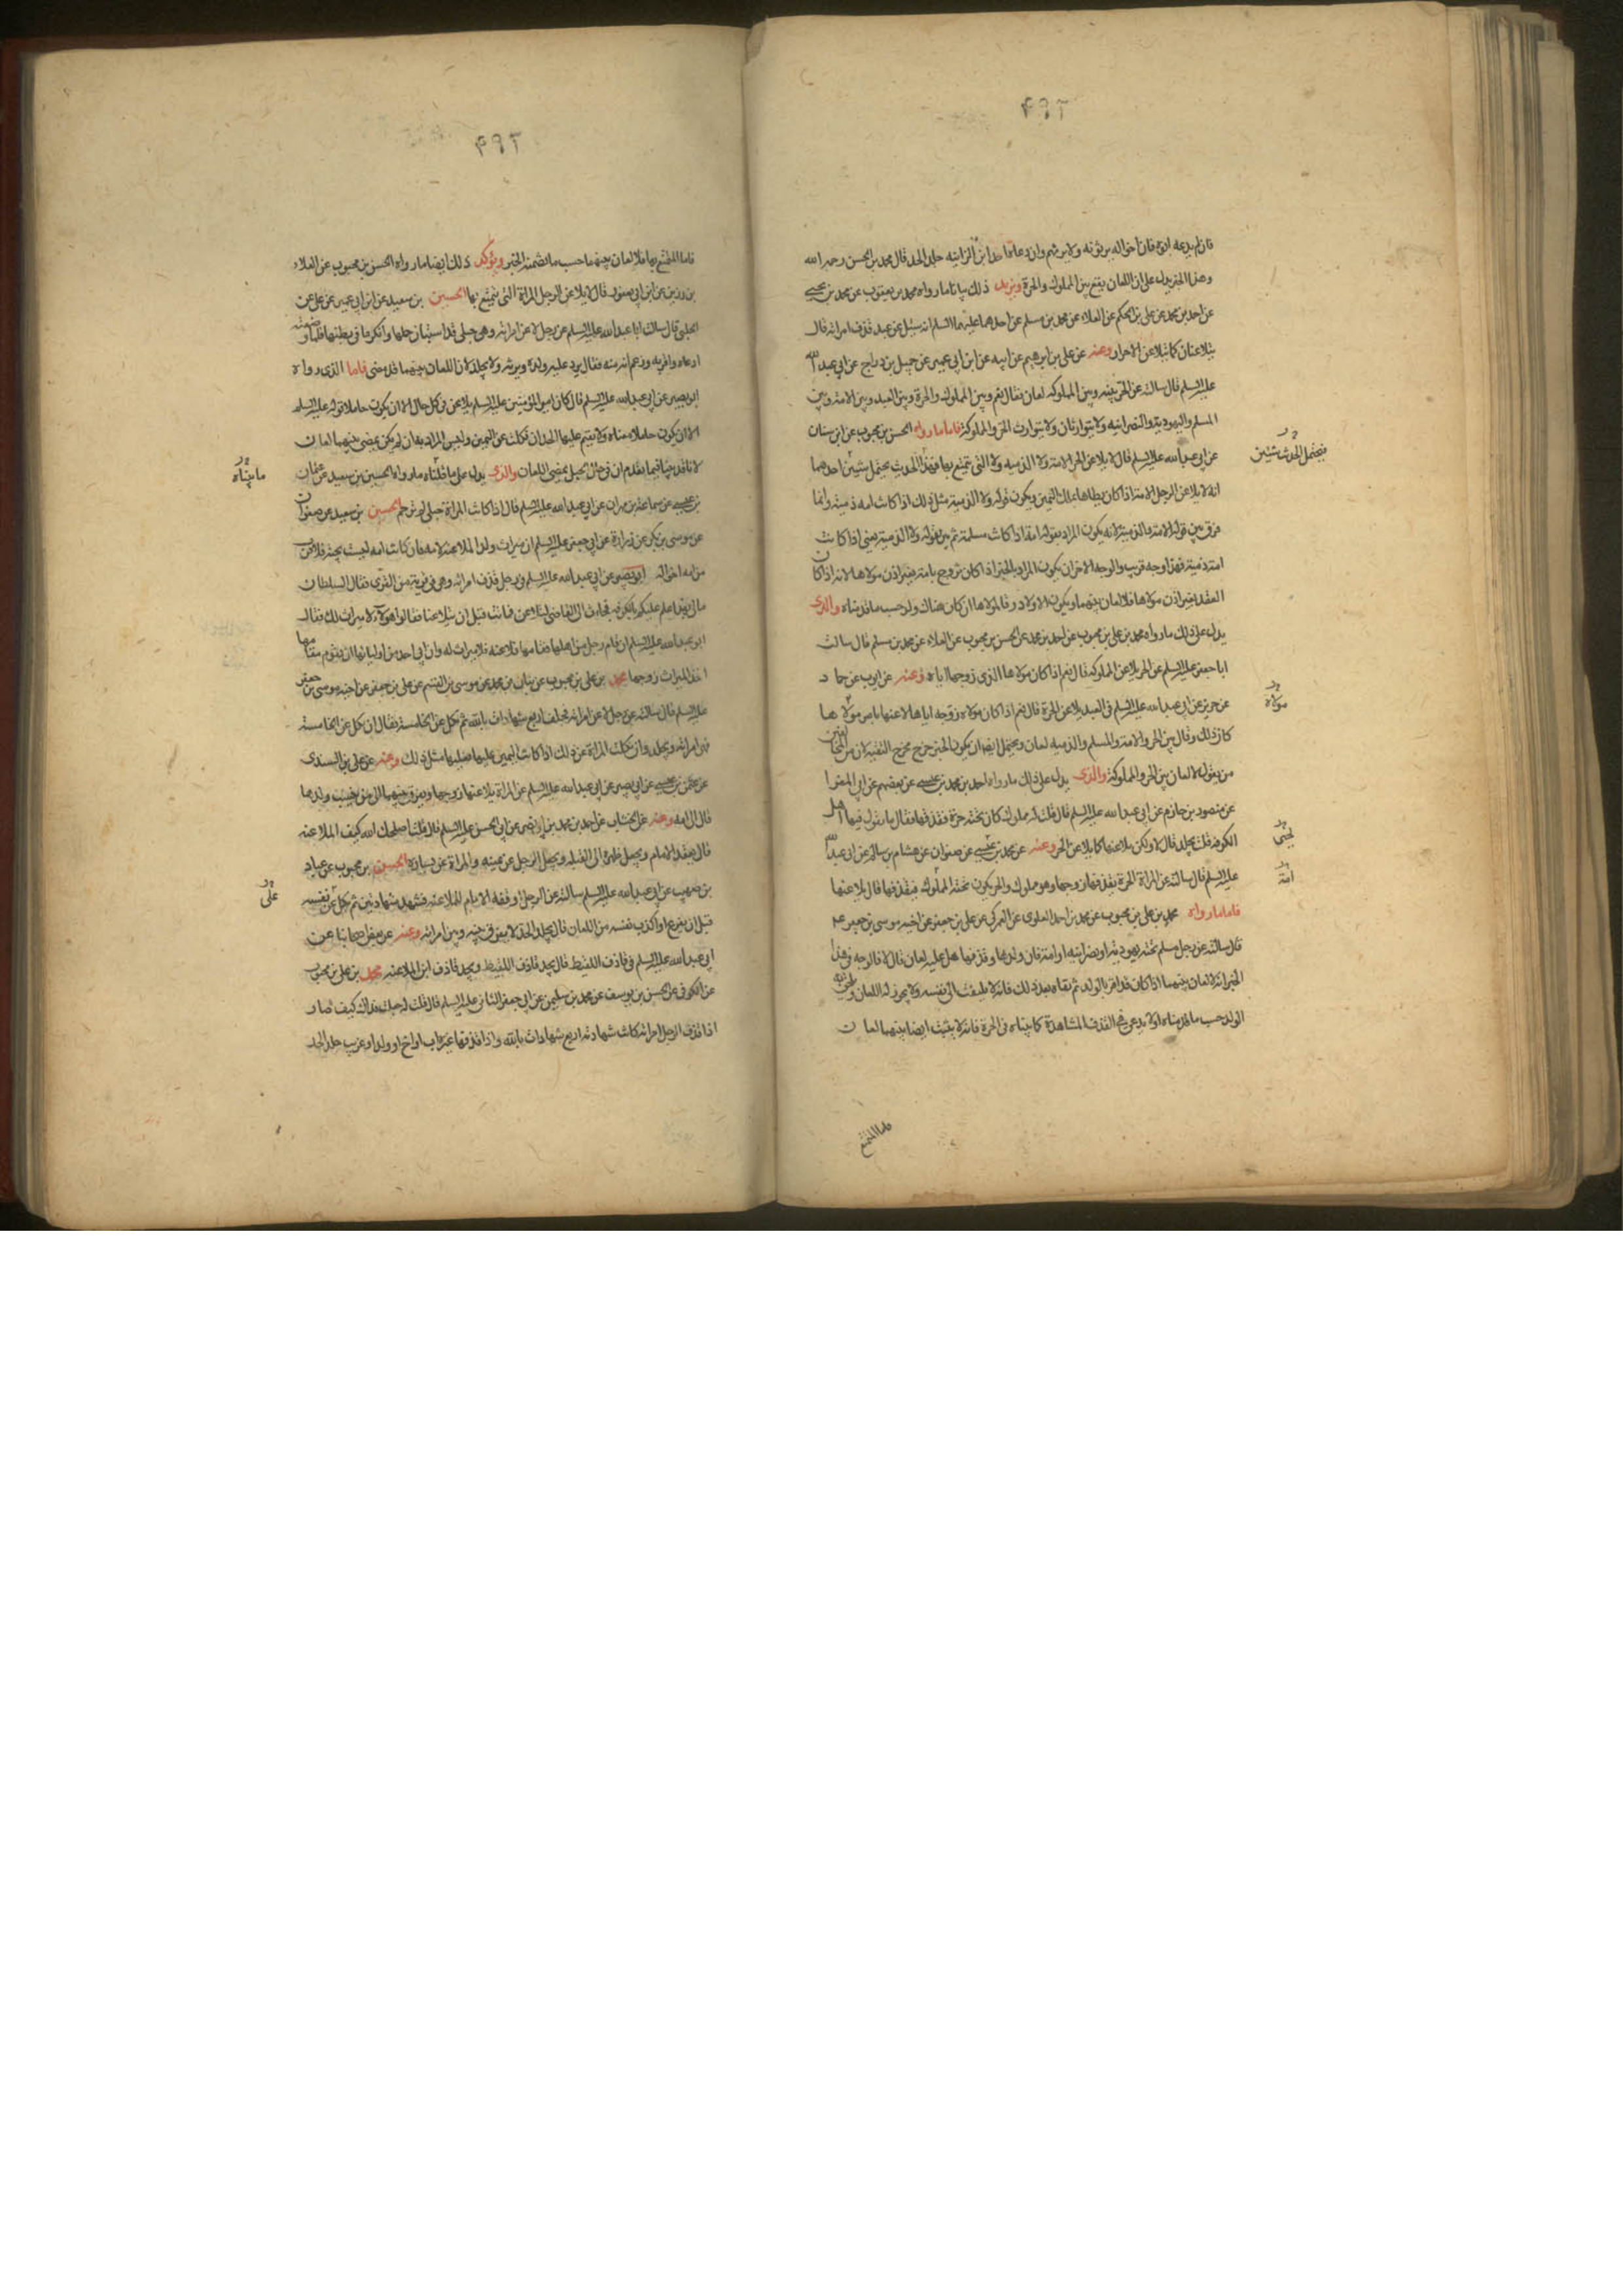 فان لم يدعه ابوه فان اخواله يرثونه ولا يرثهم وان دعاه احد ابن الزانيه جلد الحد قال محمد بن الحسن رحمه الله
وهذا الخبر يدل على ان اللعان يقع بين المملوك والحرة ويزيد ذلك بيانا ما رواه محمد بن يعقوب عن محمد بن يحيى
عن احمد بن محمد عن علي بن الحكم عن العلاء عن محمد بن مسلم عن احدهما عليهما السلام انه سئل عن عبد قذف امراته قال
يتلاعنان كما يتلاعن الاحرار وعنه عن علي بن ابرهيم عن ابيه عن ابن ابي عمير عن جميل بن دراج عن ابي عبد الله
عليه السلم قال سالته عن الحر بينه وبين المملوكه لعان فقال نعم وبين المملوك والحرة وبين العبد وبين الامة وبين
المسلم واليهودية والنصرانيه ولا يتوارثان ولا يتوارث الحر والمملوكة فاما ما رواه الحسن بن محبوب عن ابن سنان
عن ابي عبد الله عليه السلم قال لا يلاعن الحر الامة ولا الذميه ولا التي يتمتع بها فهذا الحديث يحتمل شيئين احدهما
فيحتمل الحديث شيئين
انه لا يلاعن الرجل الامة اذا كان يطاها بملك اليمين ويكون قوله ولا الذمية مثل ذلك اذا كانت امه ذمية وانما
فرق بين قوله الامة والذمية لانه يكون المراد بقوله امة اذا كانت مسلمة ثم بين بقوله ولا الذمية يعني اذا كانت
امة ذمية فهذا وجه قريب والوجه الاخر ان يكون المراد بالخبر اذا كان تزوج بامة بغير اذن مولاها لانه اذا كان
العقد بغير اذن مولاها فلا لعان بينهما ويكون الاولاد رقا لمولاها ان كان هناك ولد حسب ما قدمناه والذي
يدل على ذلك ما رواه محمد بن علي بن محبوب عن احمد بن محمد عن الحسن بن محبوب عن العلاء عن محمد بن مسلم قال سالت
ابا جعفر عليه السلم عن الحر يلاعن المملوكه قال نعم اذا كان مولاها الذي زوجها اياه وعنه عن ايوب عن حماد
عن حريز عن ابي عبد الله عليه السلم في العبد يلاعن الحرة قال نعم اذا كان مولاه زوجه اياها لاعنها بامر مولاها
مولاه
كان ذلك وقال بين الحر والامة والمسلم والذميه لعان ويحتمل ايضا ان يكون الخبر خرج مخرج التقية لان من المخالفين
من يقول لا لعان بين الحر والمملوكة والذي يدل على ذلك ما رواه احمد بن محمد بن عيسى عن بعضهم عن ابي المغرا
عن منصور بن حازم عن ابي عبد الله عليه السلم قال قلت له مملوك كان تحته حرة فقذفها فقال ما يقول فيها اهل
الكوفه قلت يجلد قال لا ولكن يلاعنها كما يلاعن الحر وعنه عن محمد بن عيسى عن صفوان عن هشام بن سالم عن ابي عبد الله
يحيى
عليه السلم قال سالته عن المراة الحرة يقذفها زوجها وهو مملوك والحر يكون تحته المملوك فيقذفها قال يلاعنها
امة
فاما ما رواه محمد بن علي بن محبوب عن محمد بن احمد العلوي عن العمركي عن علي بن جعفر عن اخيه موسى بن جعفر عم
قال سالته عن رجل مسلم تحته يهودية او نصرانيه او امة فان ولدها وقذفها هل عليه لعان قال لا فالوجه في هذا
الخبر انه لا لعان بينهما اذا كان قد اقر بالولد ثم نفاه بعد ذلك فانه لا يلتفت الى نفسه ولا يجوز له اللعان ويلحق به
الولد حسب ما قدمناه او لا يدعي في القذف المشاهدة كما بيناه في الحرة فانه لا يثبت ايضا بينهما لعان
فاما المتمتع
٤٩٢
فاما المتمتع بها فلا لعان بينهما حسب ما تضمنه الخبر ويؤكد ذلك ايضا ما رواه الحسن بن محبوب عن العلاء
بن رزين عن ابن ابي يعفور قال لا يلاعن الرجل المراة التي يتمتع بها الحسين بن سعيد عن ابن ابي عمير عن علي عن
الحلبي قال سالت ابا عبد الله عليه السلم عن رجل لاعن امراته وهي حبلى قد استبان حملها وانكر ما في بطنها فلما وضعته
ادعاه واقر به وزعم انه منه فقال يرد عليه ولده ويرثه ولا يجلد لان اللعان بينهما قد مضى فاما الذي رواه
ابو بصير عن ابي عبد الله عليه السلم قال كان امير المؤمنين عليه السلم يلاعن في كل حال الا ان يكون حاملا قوله عليه السلم
الا ان يكون حاملا معناه ولا يقيم عليها الحد ان نكلت عن اليمين وليس المراد به ان لم يكن يمضي بينهما لعان
لانا قد بينا فيما تقدم ان في حال الحبل يمضي اللعان والذي يدل على ما قلناه ما رواه الحسين بن سعيد عن عثمان
ما بيناه
بن عيسى عن سماعة بن مهران عن ابي عبد الله عليه السلم قال اذا كانت المراة حبلى لم ترجم الحسين بن سعيد عن صفوان
عن موسى بن بكر عن زرارة عن ابي جعفر عليه السلم ان ميراث ولد الملاعنة لامه فان كانت امه ليست بحية فلاقرب
من امه اخواله ابو بصير عن ابي عبد الله عليه السلم في رجل قذف امراته وهي في قرية من القرى فقال السلطان
ما لي بهذا علم عليكم بالكوفه فجاءت الى القاضي لتلاعن فماتت قبل ان يتلاعنا فقالوا هؤلاء لا ميراث لك فقال
ابو عبد الله عليه السلم ان قام رجل من اهلها مقامها فلاعنه فلا ميراث له وان ابى احد من اوليائها ان يقوم مقامها
اخذ الميراث زوجها محمد بن علي بن محبوب عن بنان بن محمد عن موسى بن القسم عن علي بن جعفر عن اخيه موسى بن جعفر
عليه السلم قال سالته عن رجل لاعن امراته فحلف اربع شهادات بالله ثم نكل عن الخامسة فقال ان نكل عن الخامسة
فهي امراته ويجلد وان نكلت المراة عن ذلك اذا كانت اليمين عليها فعليها مثل ذلك وعنه عن علي بن السندي
عن عثمن بن عيسى عن ابي بصير عن ابي عبد الله عليه السلم عن المراة يلاعنها زوجها ويفرق بينهما الى من ينسب ولدها
قال الى امه وعنه عن الخشاب عن احمد بن محمد بن ابي نصر عن ابي الحسن عليه السلم قال قلت اصلحك الله كيف الملاعنه
قال يقعد الامام ويجعل ظهره الى القبله ويجعل الرجل عن يمينه والمراة عن يساره الحسن بن محبوب عن عباد
بن صهيب عن ابي عبد الله عليه السلم سالته عن الرجل اوقفه الامام للملاعنه فشهد شهادتين ثم نكل عن نفسه
على
قبل ان يفرغ او اكذب نفسه من اللعان قال يجلد الحد ولا يفرق بينه وبين امراته وعنه عن بعض اصحابنا عن
ابي عبد الله عليه السلم في قاذف اللقيط قال يحد قاذف اللقيط ويحد قاذف ابن الملاعنه محمد بن علي بن محبوب
عن الكوفي عن الحسن بن يوسف عن محمد بن سليمن عن ابي جعفر الثاني عليه السلم قال قلت له جعلت فداك كيف صار
اذا قذف الرجل امراته كانت شهادته اربع شهادات بالله واذا قذفها غيره اب او اخ او ولد او غريب جلد الحد